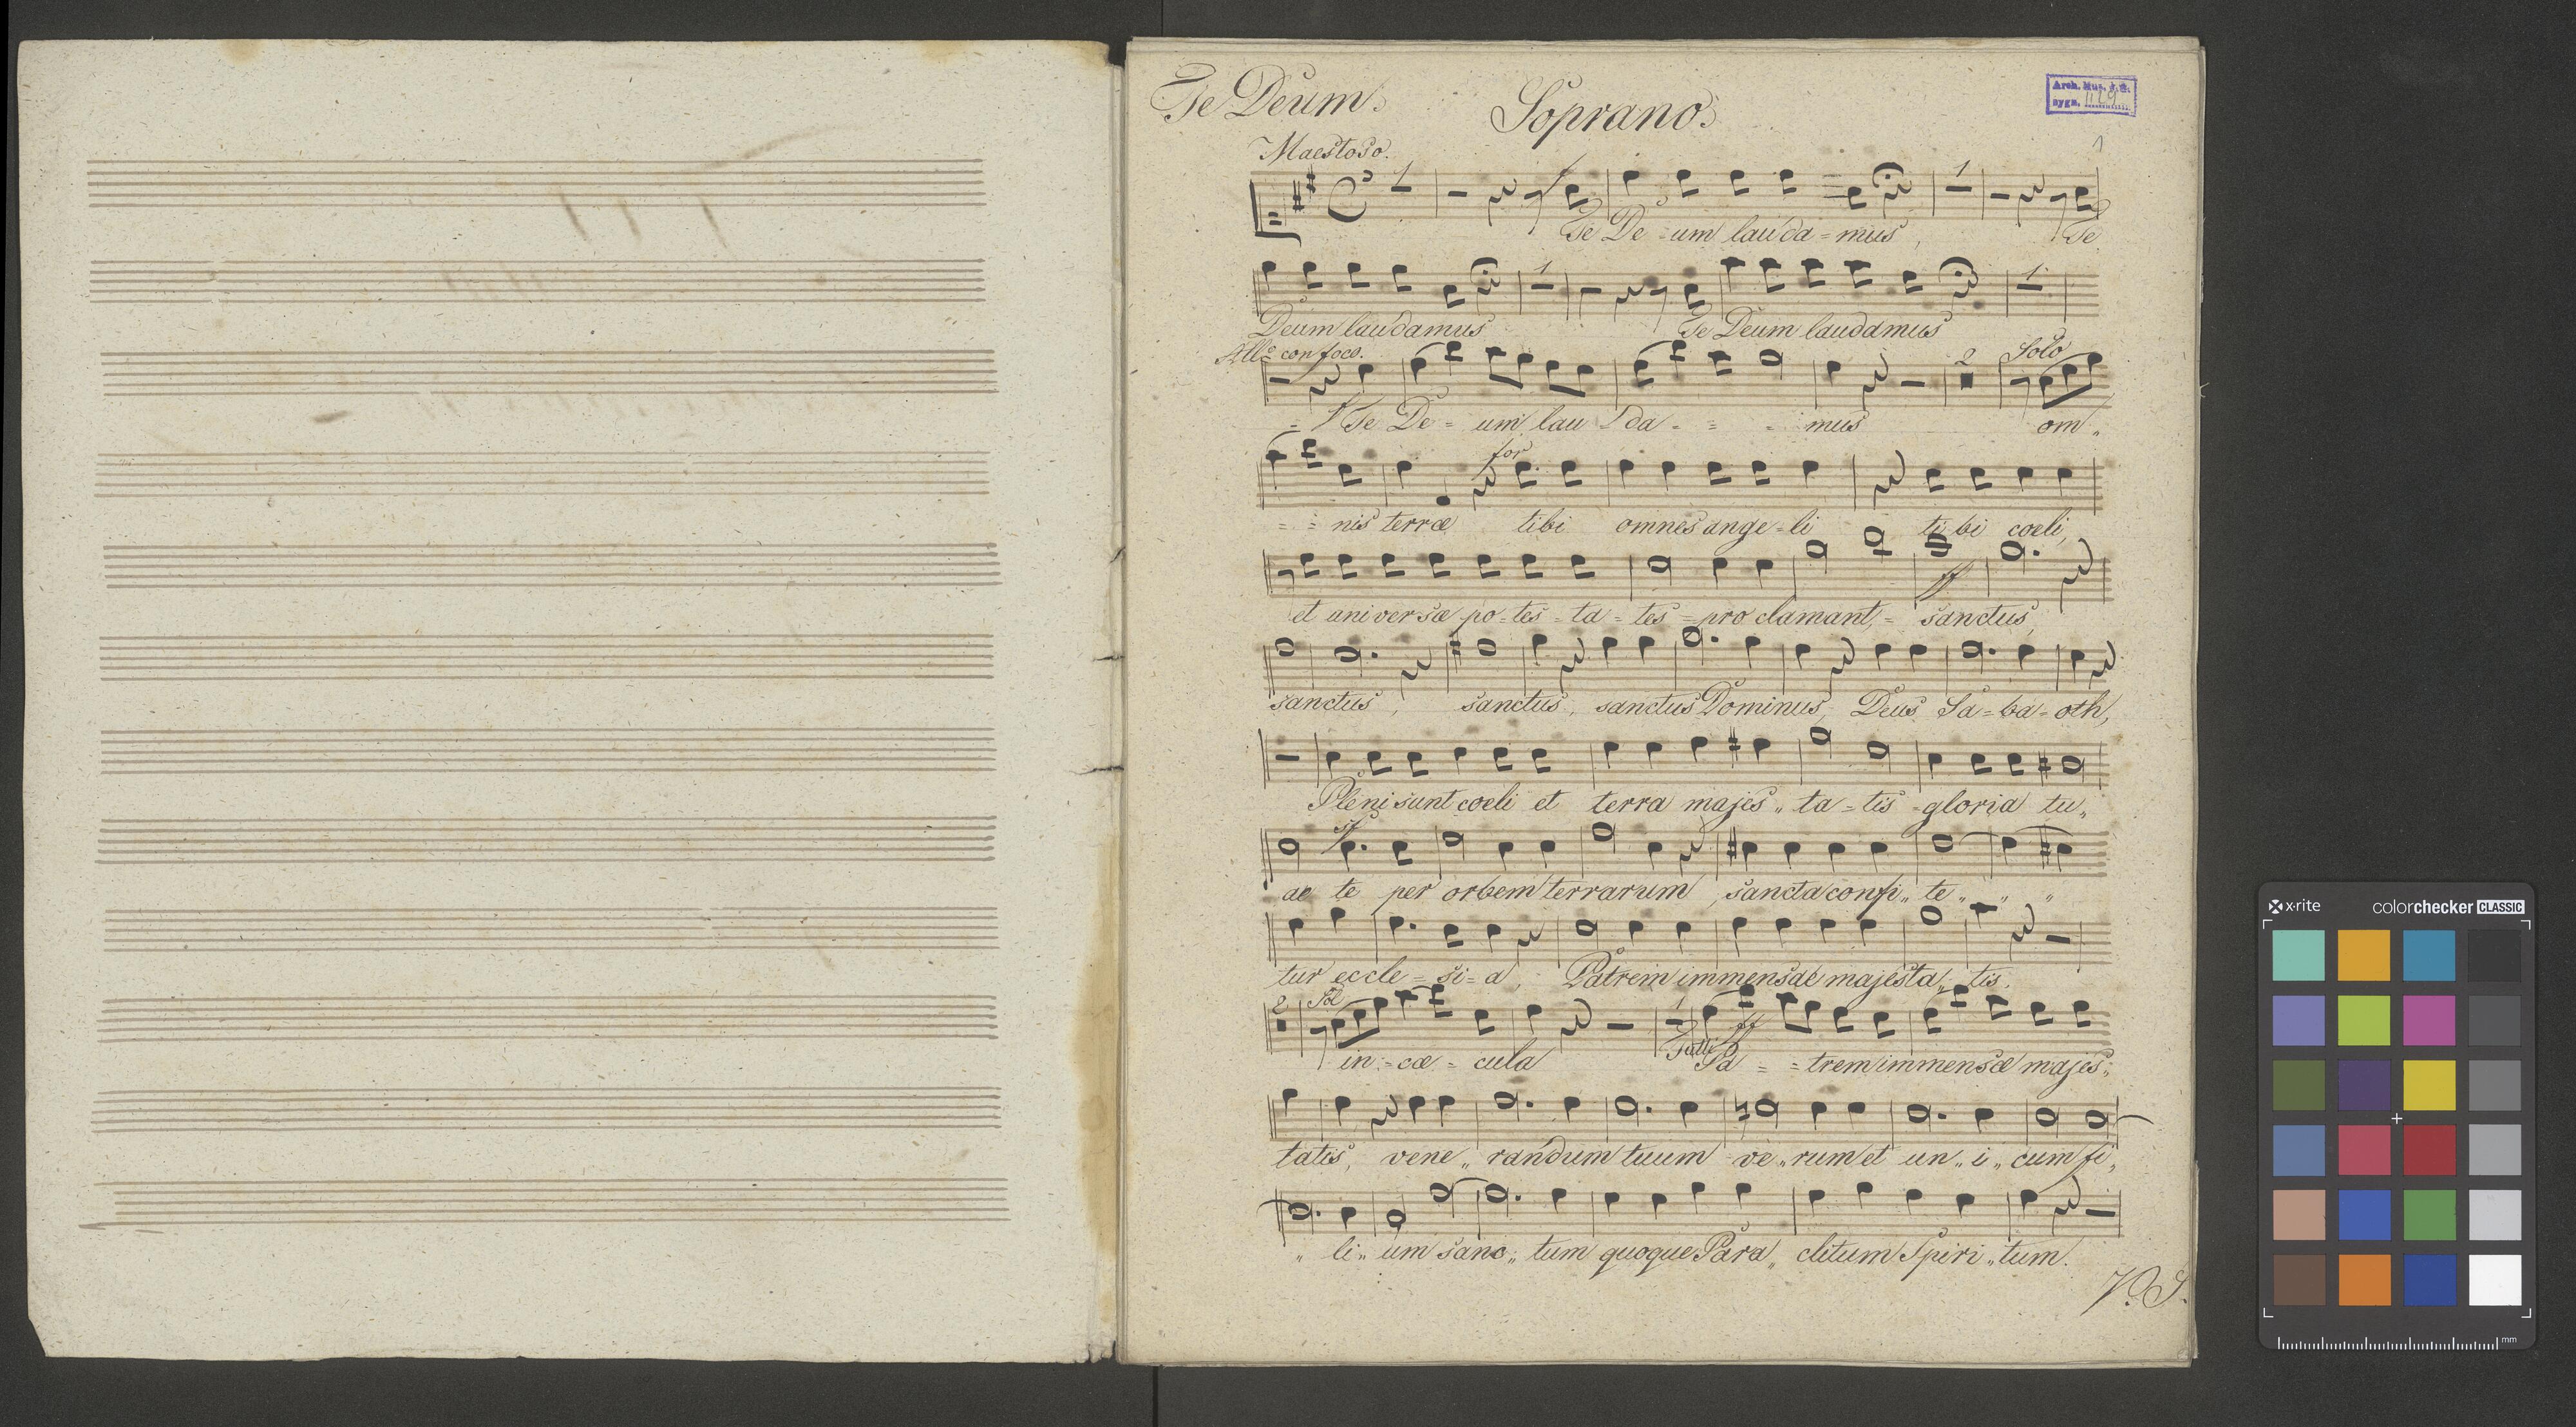 Te Deum.
Soprano.
Arch. Mus. J.G.
sygn. 1129
1
Maestoso.
1
1
Te De - um lauda = mus, Te
1
1
Deum laudamus Te Deum laudamus
All.o con foco. 2 Solo
f Te De = um lau da - = - mus om„
for
= = nis terræ tibi omnes ange = li ti = bi coeli,
ff
et univer sæ po = tes = ta = tes = pro clamant, = sanctus,
sanctus, sanctus, sanctus Dominus, Deus Sa = ba = oth,
Pleni sunt coeli et terra majes „ ta = tis = gloria tu„
sf
ae te per orbem terrarum, sancta confi„ te„ „ „
tur eccle = si = a, Patrem immensae majesta„ tis.
2 Sol 1 ff
in = cæ = cula Tutti Pa = = trem immensæ majes„
tatis, vene„ randum tuum ve„ rum et un„ i„ cum fi„
„ li„ um sanc„ tum quoque Para„ clitum Spiri„ tum.
V. S.
x·rite colorchecker CLASSIC
mm